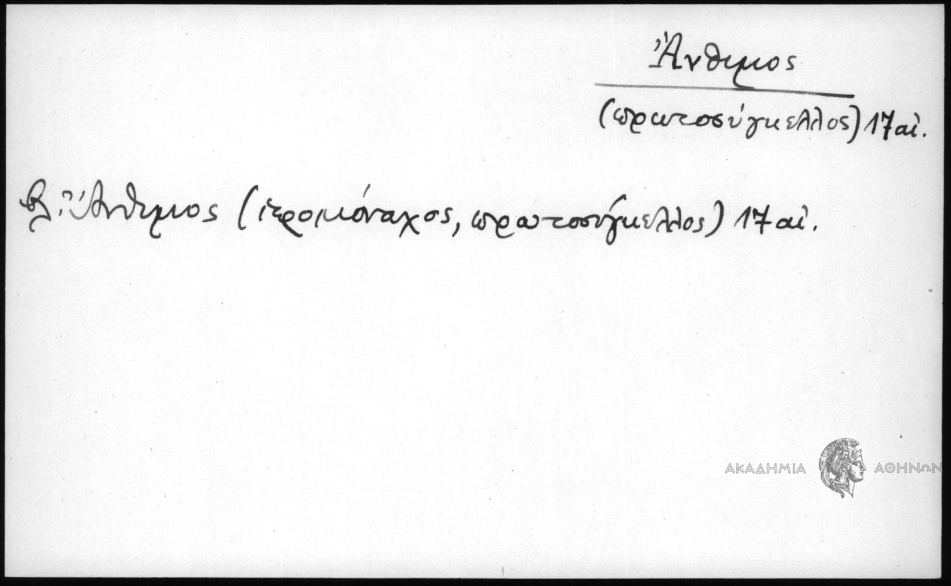 Ἄνθιμος
(πρωτοσύγκελλος) 17 αἰ.
βλ. Ἄνθιμος (ἱερομόναχος, πρωτοσύγκελλος) 17 αἰ.
ΑΚΑΔΗΜΙΑ ΑΘΗΝΩΝ